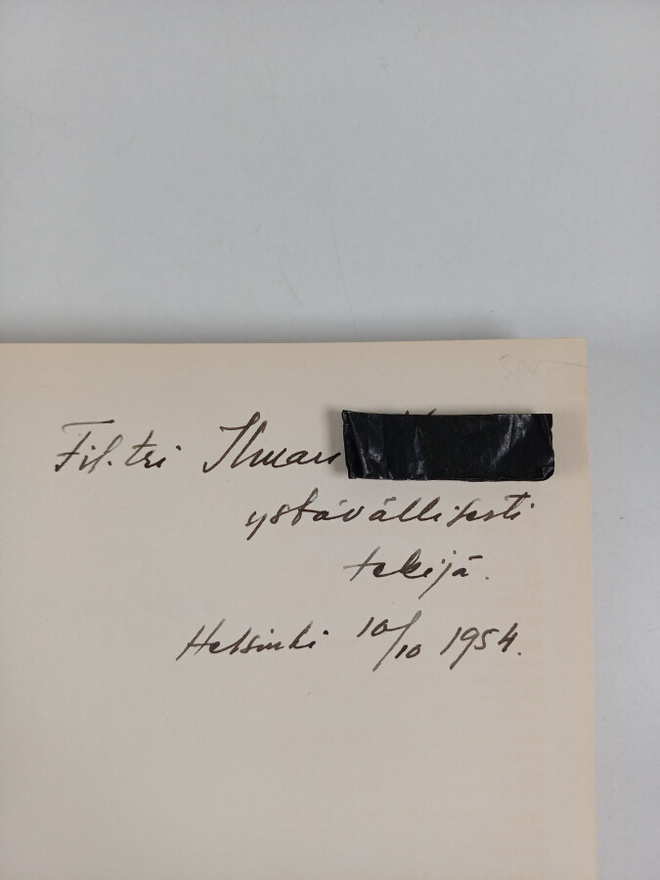 Fil.tri Ilmari
ystävällisesti
tekijä.
Helsinki 10/10 1954.